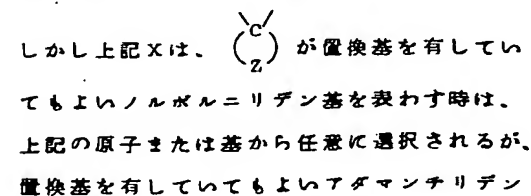 しかし上記Xは、 C Z が置換基を有してい
てもよいノルボルニリデン基を表わす時は、
上記の原子または基から任意に選択されるが、
置換基を有していてもよいアダマンチリデン